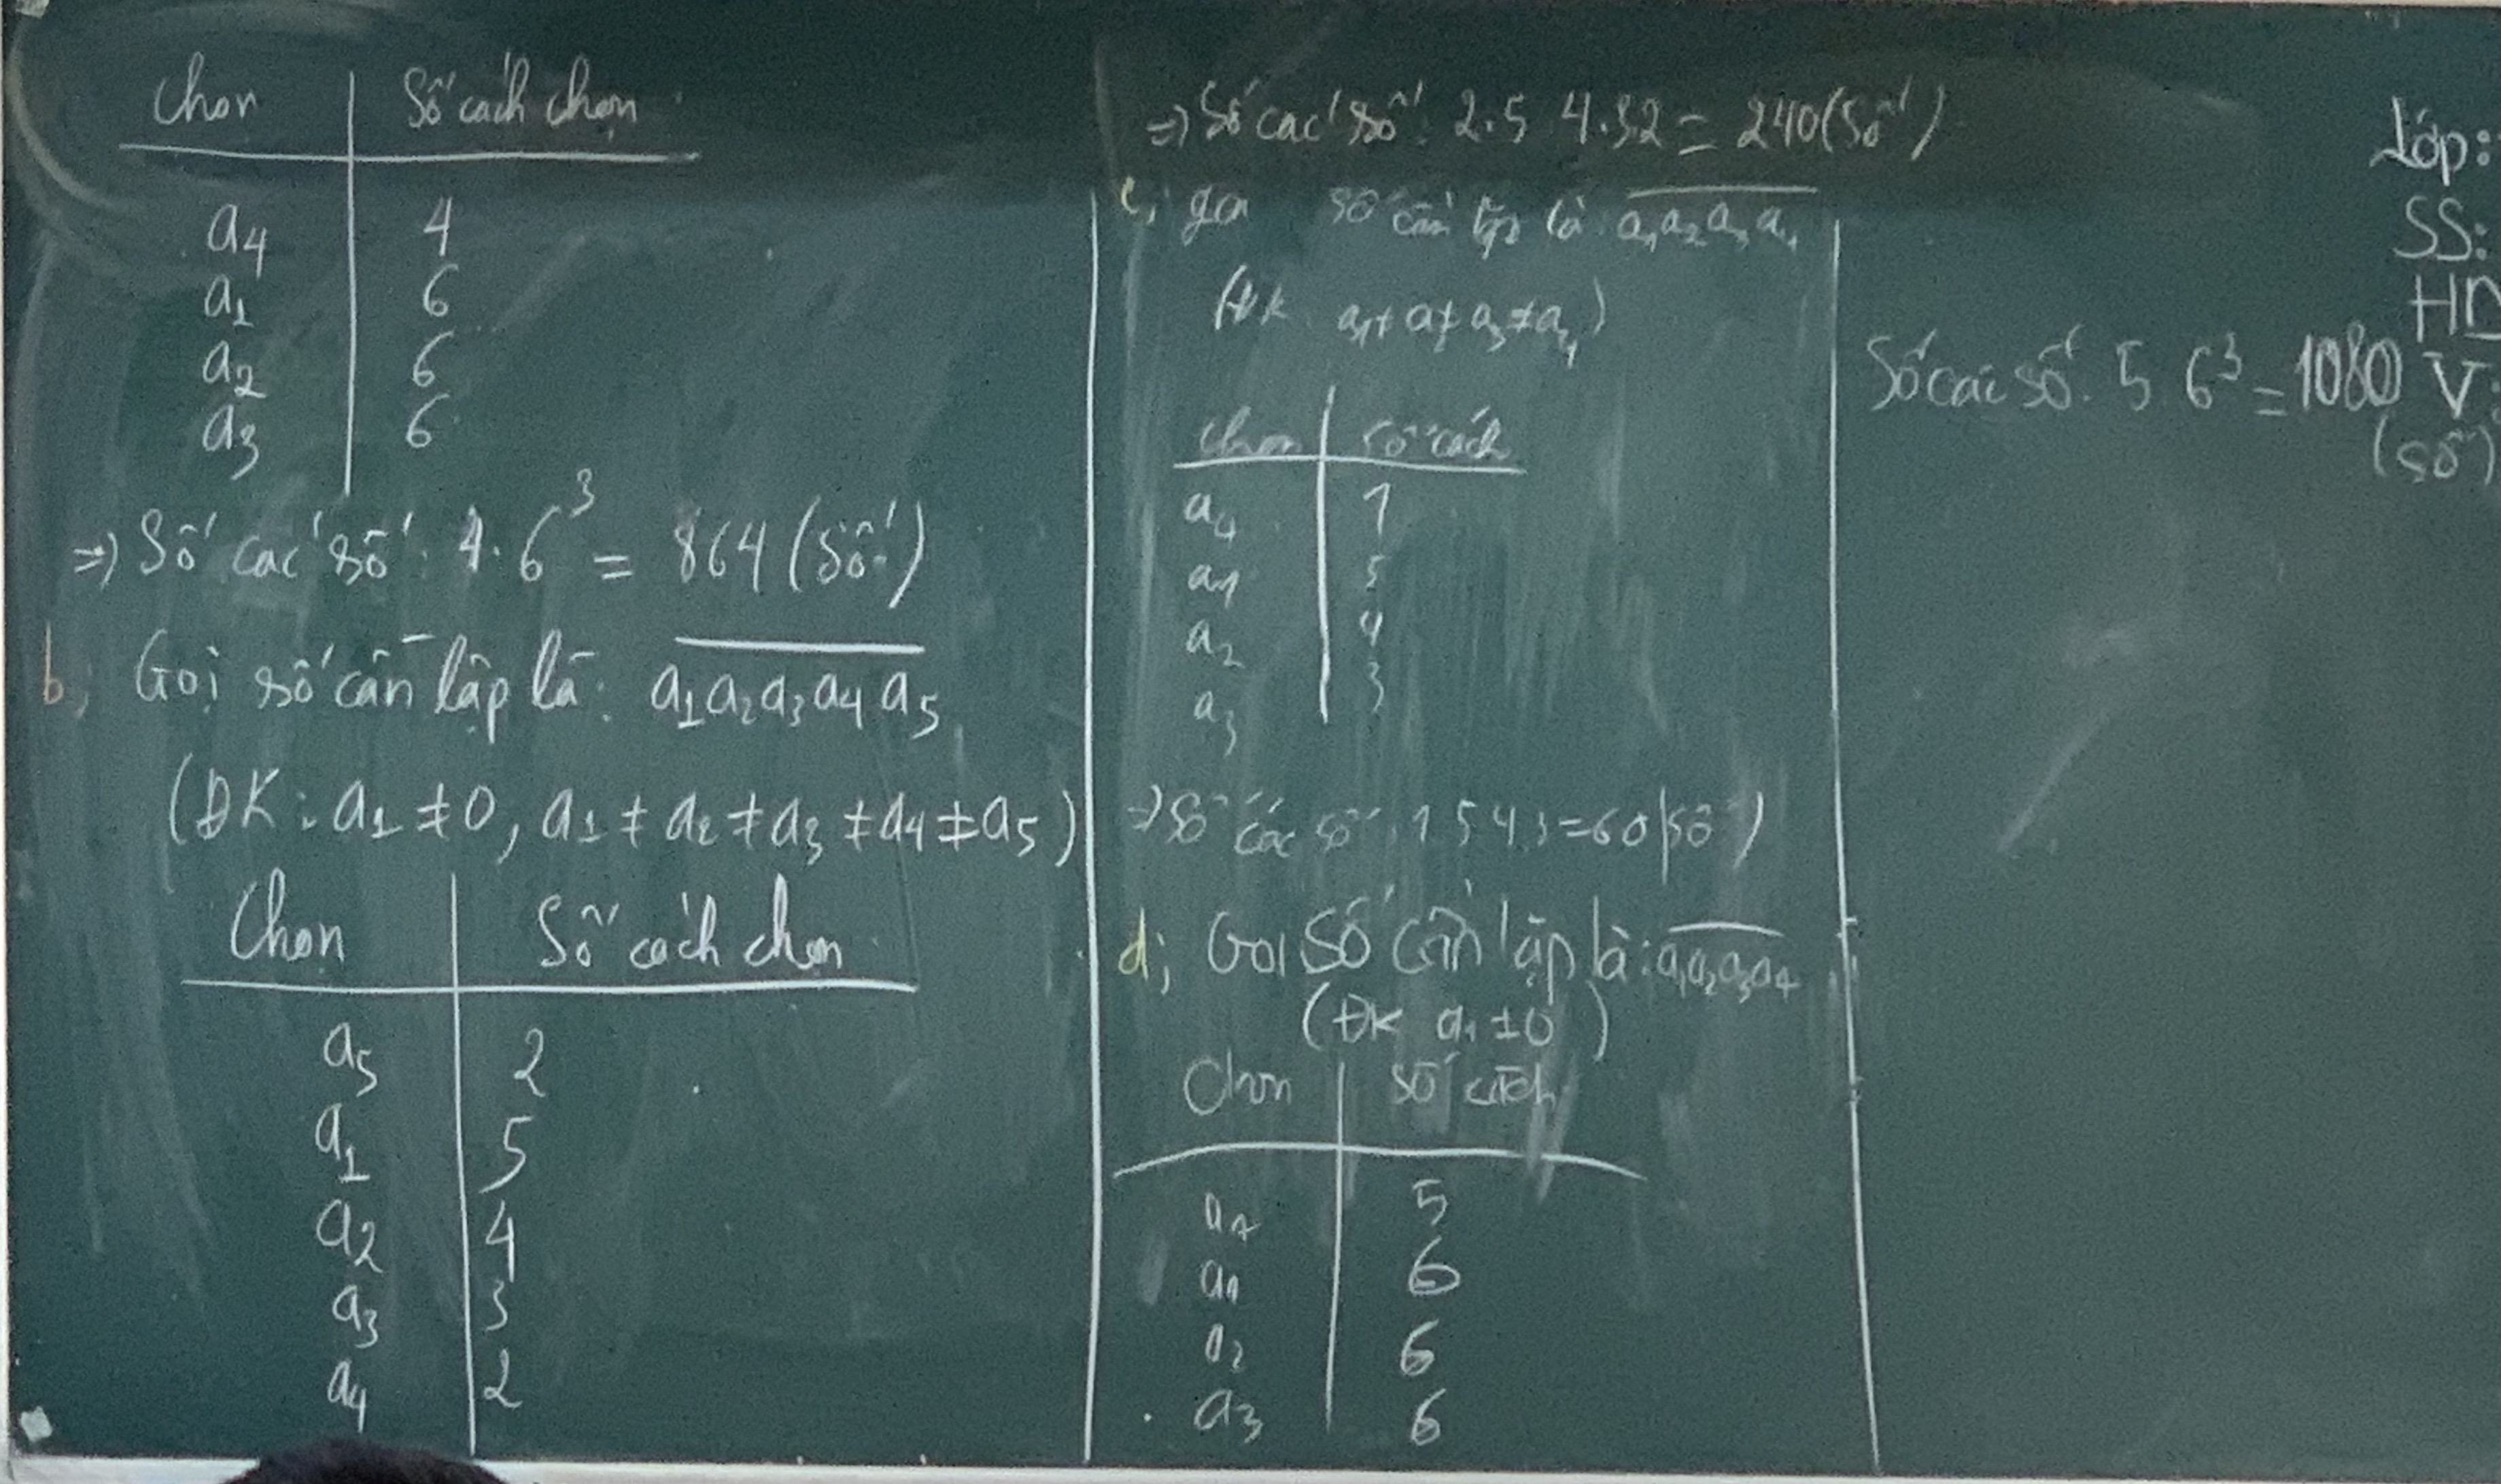 Chọn | Số cách chọn
a4 | 4
a1 | 6
a2 | 6
a3 | 6
=) Số các số: 4.6³ = 864 (số)
b, Gọi số cần lập là: a1a2a3a4a5
(ĐK: a1 ≠ 0, a1 ≠ a2 ≠ a3 ≠ a4 ≠ a5)
Chọn | Số cách chọn
a5 | 2
a1 | 5
a2 | 4
a3 | 3
a4 | 2
=) Số các số: 2.5 4.32 = 240 (số)
c, gọi số cần lập là: a1a2a3a4
(ĐK: a1 ≠ a ≠ a3 ≠ a4)
Chọn | Số cách
a4 | 1
a1 | 5
a2 | 4
a3 | 3
=) Số các số: 1 5 4.3 = 60 (số)
d, Gọi Số cần lập là: a1a2a3a4
(ĐK a1 ≠ 0)
Chọn | số cách
5
a1 | 6
a2 | 6
a3 | 6
Số các số: 5 6³ = 1080
(số)
Lớp:
SS:
HD
V: